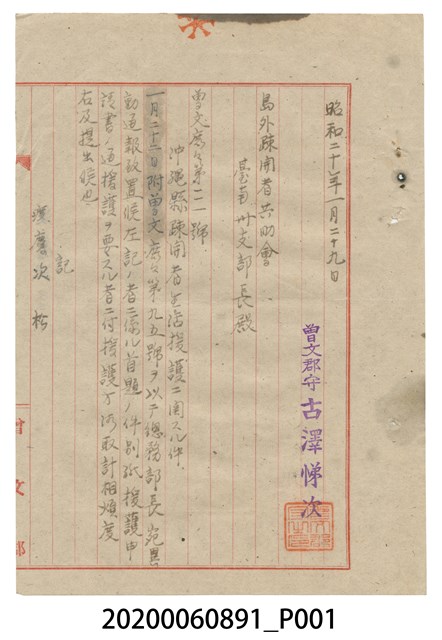 昭和二十年一月二十九日
曽文郡守 古澤悌次
島外疎開者共助會
臺南州支部長殿
曽文庶第一一號
沖繩縣疎開者生活援護ニ関スル件
一月二十二日附曽文庶第九五號ヲ以テ總務部長宛異
動通報致置候左記ノ者ニ係ル首題ノ件別紙援護申
請書ノ通援護ヲ要スル者ニ付援護方御取計相煩度
右及提出候也
記
次 松
曽文郡
20200060891_P001